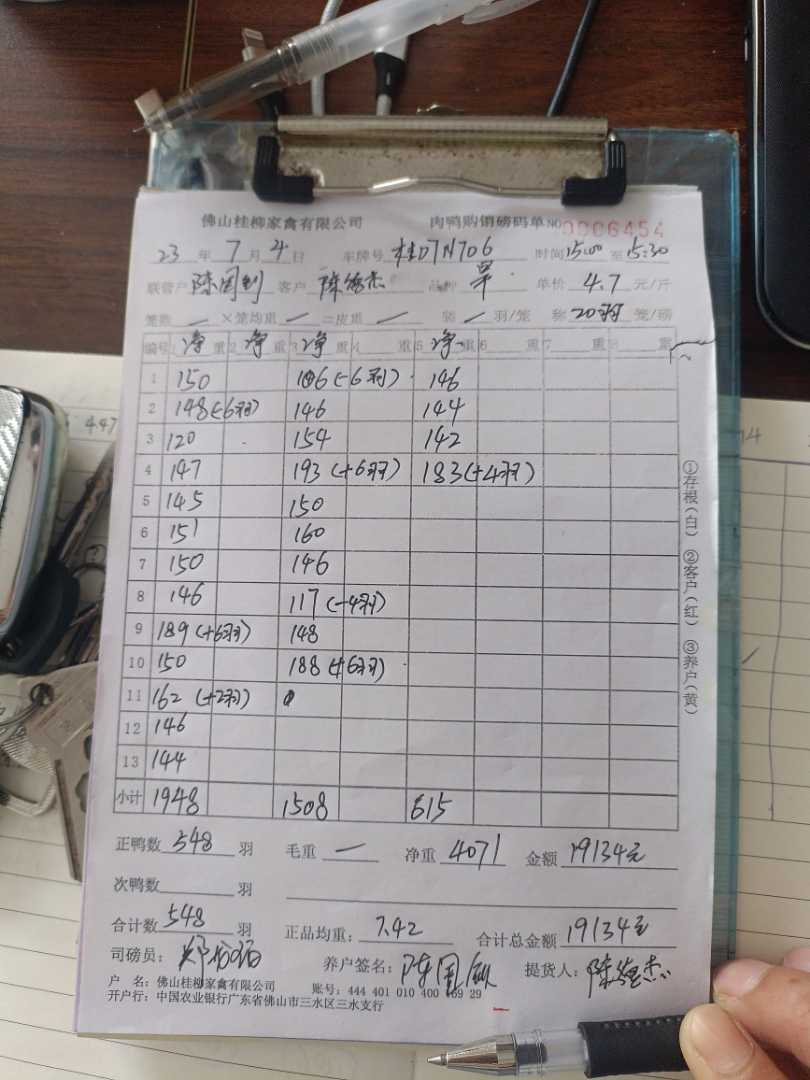 佛山桂柳家禽有限公司 肉鸭购销磅码单 NO 0006454
23 年 7 月 4 日 车牌号 桂D7N706 时间 15:00 至 15:30
联营户 陈国钊 客户 陈德杰 品种 单价 4.7 元/斤
笼数 — ×笼均重 — =皮重 — 装 — 羽/笼 称 20羽 笼/磅
编号 1 净 重 2 净 重 3 净 重 4 重 5 净 重 6 重 7 重 8 重
1 150 106(-6羽) 146
2 148(-6羽) 146 144
3 120 154 142
4 147 193(+6羽) 183(+4羽)
5 145 150
6 151 160
7 150 146
8 146 117(-4羽)
9 189(+6羽) 148
10 150 188(+6羽)
11 162(+2羽)
12 146
13 144
小计 1948 1508 615
正鸭数 548 羽 毛重 — 净重 4071 金额 19134元
次鸭数 羽
合计数 548 羽 正品均重: 7.42 合计总金额 19134元
司磅员: 养户签名: 陈国钊 提货人: 陈德杰
户 名: 佛山桂柳家禽有限公司 账号: 444 401 010 400 169 29
开户行: 中国农业银行广东省佛山市三水区三水支行
①存根(白) ②客户(红) ③养户(黄)
447